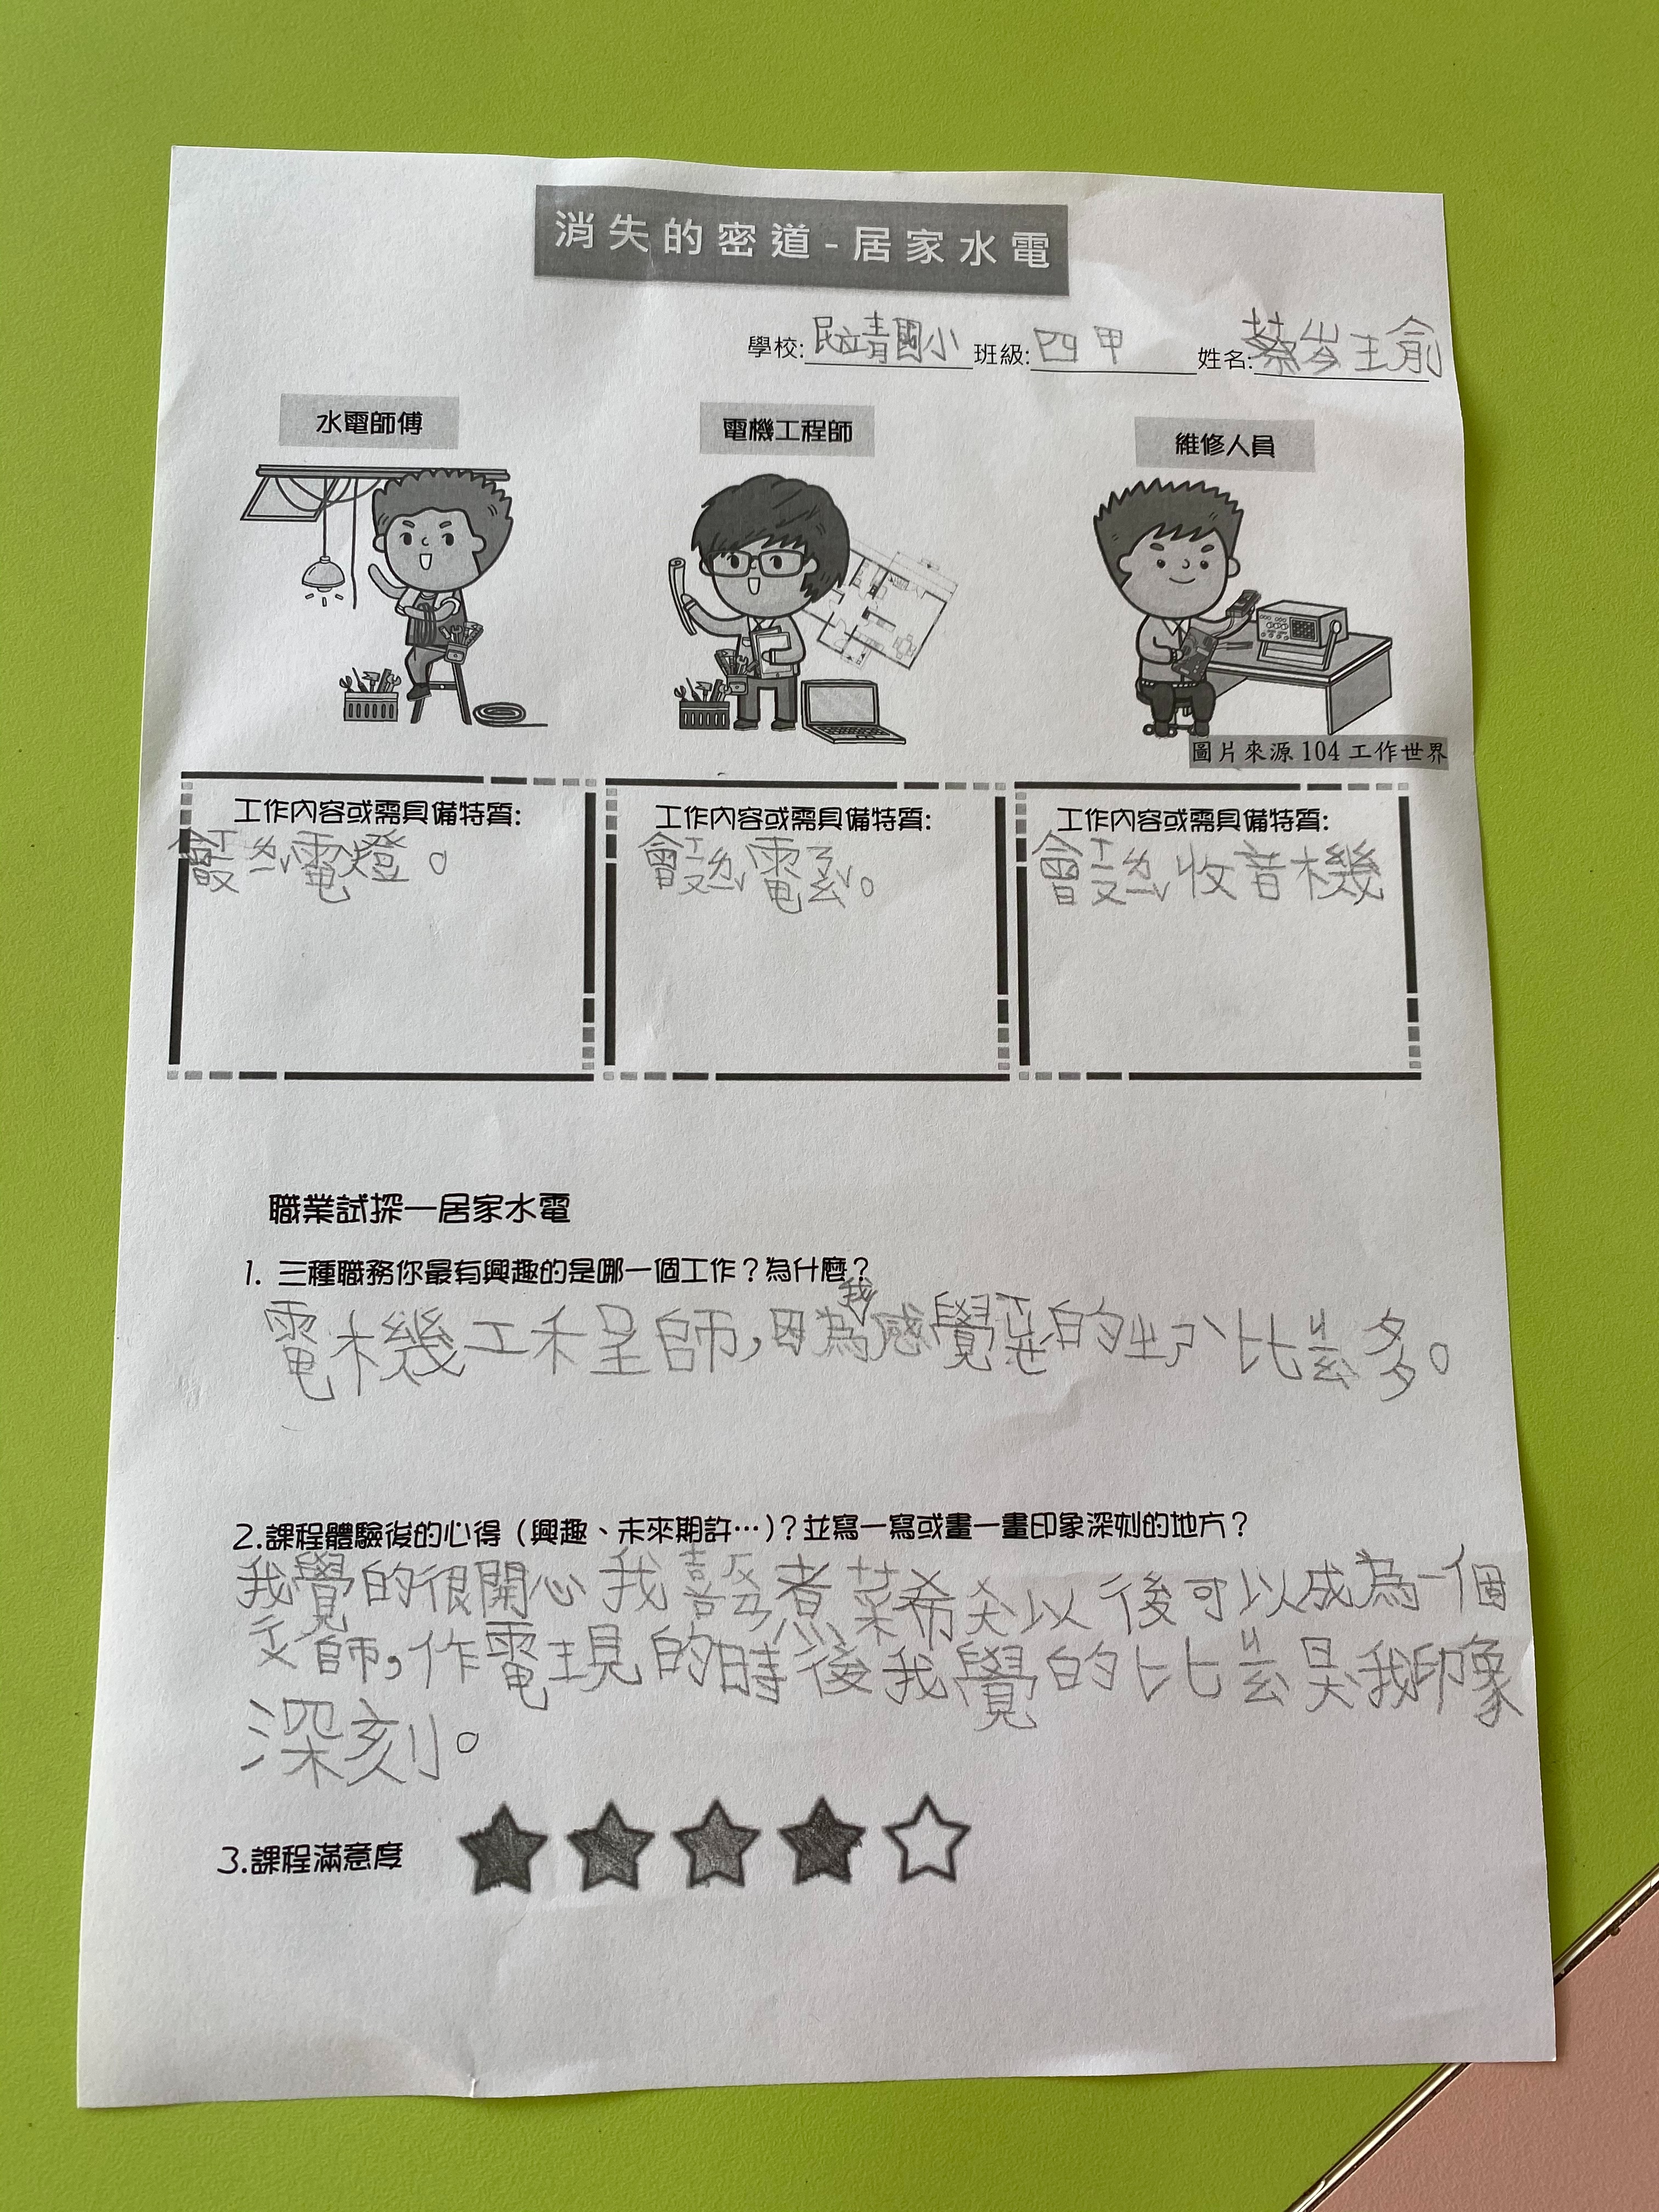 消失的密道-居家水電
學校: 靖國小 班級: 四甲 姓名: 蔡岑瑜
水電師傅 電機工程師 維修人員
圖片來源 104 工作世界
工作內容或需具備特質: 工作內容或需具備特質: 工作內容或需具備特質:
會設ㄌㄧˇ電燈。 會設ㄌㄧˇ電ㄋㄠˇ。 會設ㄌㄧˇ收音機
職業試探—居家水電
1. 三種職務你最有興趣的是哪一個工作？為什麼？
電機工程師，因為我感覺 的 比ㄐㄧㄠˋ多。
2.課程體驗後的心得（興趣、未來期許…）？並寫一寫或畫一畫印象深刻的地方？
我覺的很開心我喜ㄏㄨㄢ煮菜希 以後可以成為一個
師，作電 的時後我覺的比 我印象
深刻。
3.課程滿意度